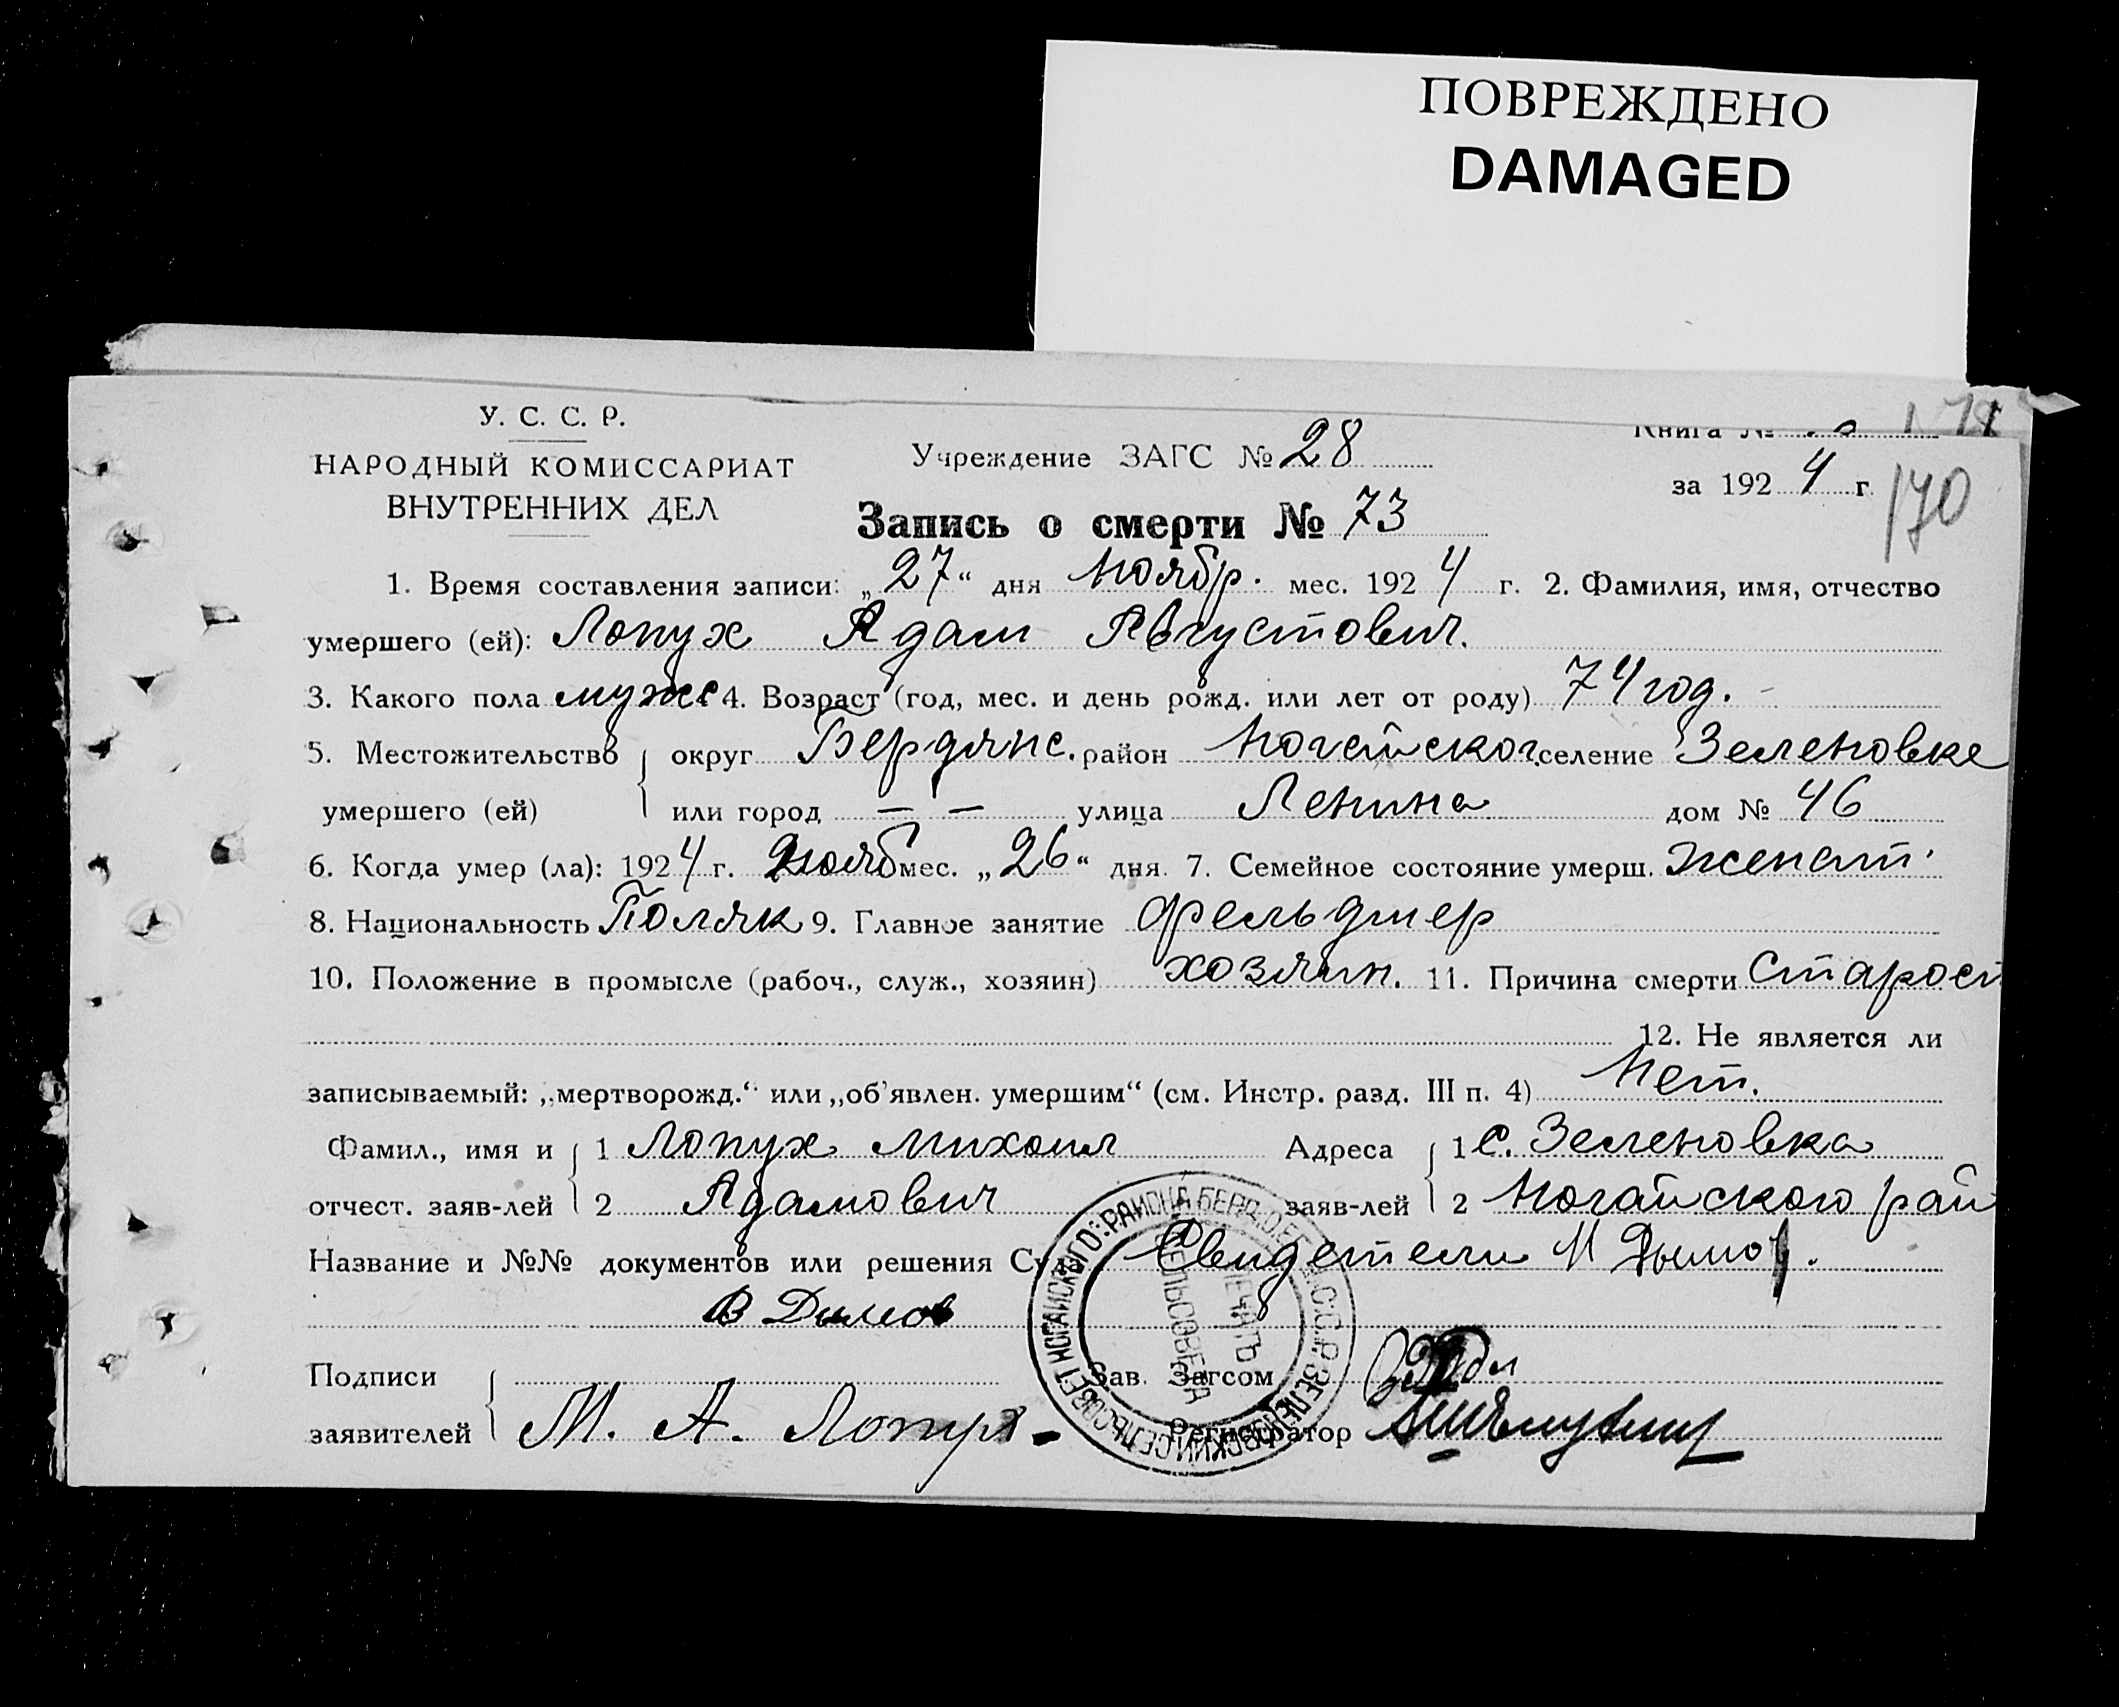 ПОВРЕЖДЕНО
DAMAGED
У. С. С. Р.
НАРОДНЫЙ КОМИССАРИАТ
ВНУТРЕННИХ ДЕЛ
Учреждение ЗАГС № 28
Книга №
за 1924 г.
170
Запись о смерти № 73
1. Время составления записи: „27“ дня Ноябр. мес. 1924 г. 2. Фамилия, имя, отчество
умершего (ей): Лопух Адам Августович.
3. Какого пола мужс 4. Возраст (год, мес. и день рожд. или лет от роду) 74 год.
5. Местожительство умершего (ей) { округ Бердянс. район Ногайског. селение Зеленовке
или город — — улица Ленина дом № 46
6. Когда умер (ла): 1924 г. Нояб мес. „26“ дня. 7. Семейное состояние умерш. женат
8. Национальность Поляк 9. Главное занятие фельдшер
10. Положение в промысле (рабоч., служ., хозяин) хозяин. 11. Причина смерти Старост
12. Не является ли
записываемый: „мертворожд.“ или „об'явлен. умершим“ (см. Инстр. разд. III п. 4) Нет.
Фамил., имя и { 1 Лопух Михаил Адреса { 1 с. Зеленовка
отчест. заяв-лей { 2 Адамович заяв-лей { 2 Ногайского рай
Название и №№ документов или решения Суда Свидетели И Дымов.
В Дымов
Подписи Зав. Загсом
заявителей { М. А. Лопух - Регистратор
ЗЕЛЕНОВСКИЙ СЕЛЬСОВЕТ НОГАЙСКОГО РАЙОНА БЕРД. ОКР. У.С.С.Р.
ПЕЧАТЬ
СЕЛЬСОВЕТА